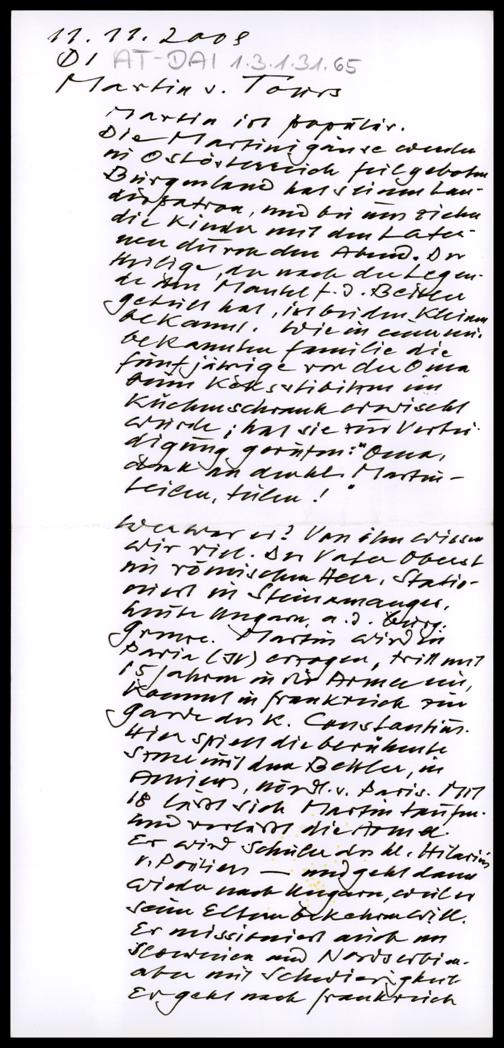 11.11.2008
DI AT-DAI 1.3.1.31.65
Martin v. Tours
Martin ist populär.
Die Martinigänse werden
in Ostösterreich feilgeboten
Burgenland hat seinen Lan-
despatron, und bei uns ziehen
die Kinder mit den Later-
nen durch den Abend. Der
Heilige, der nach der Legen-
de den Mantel f. d. Bettler
geteilt hat, ist bei den Kleinen
bekannt. Wie in einer mir
bekannten Familie die
fünfjährige von der Oma
beim Keks stibitzen im
Küchenschrank erwischt
wurde, hat sie zur Vertei-
digung gerufen: "Oma,
denk an den hl. Martin -
teilen, teilen!"
Wer war er? Von ihm wissen
wir viel. Der Vater Oberst
im römischen Heer, Statio-
niert in Steinamanger,
heute Ungarn, a.d. burg.
Grenze. Martin wird in
Pavia (It) erzogen, tritt mit
15 Jahren in die Armee ein,
kommt in Frankreich zur
Garde des K. Constantius.
Hier spielt die berühmte
Szene mit dem Bettler, in
Amiens, nördl. v. Paris. Mit
18 läßt sich Martin taufen
und verläßt die Armee.
Er wird Schüler des hl. Hilarius
v. Poitiers — und geht dann
wieder nach Ungarn, weil er
seine Eltern bekehren will.
Er missioniert auch in
Slowenien und Nordserbien.
aber mit Schwierigkeit.
Er geht nach Frankreich